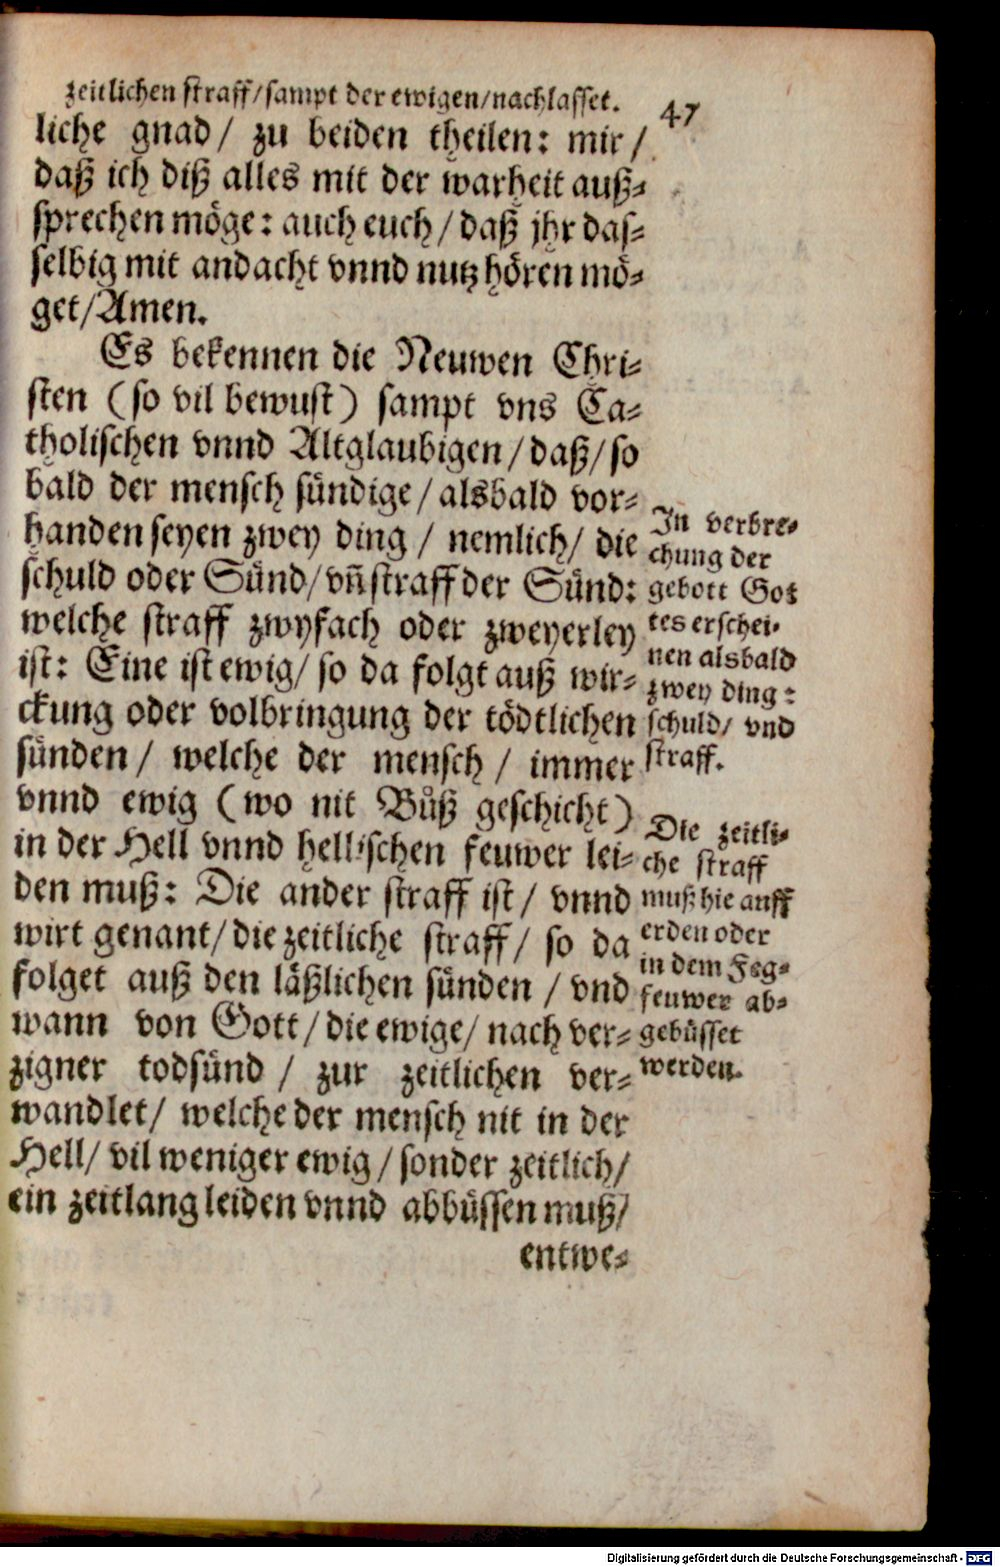 zeitlichen straff/sampt der ewigen/nachlasset.
47
liche gnad/ zu beiden theilen: mir/
daß ich diß alles mit der warheit auß⸗
sprechen möge: auch euch/daß jhr das⸗
selbig mit andacht vnnd nutz hören mö⸗
get/Amen.
Es bekennen die Neuwen Chri⸗
sten (so vil bewust) sampt vns Ca⸗
tholischen vnnd Altglaubigen/daß/so
bald der mensch sündige/alsbald vor⸗
handen seyen zwey ding/ nemlich/ die
schuld oder Sünd/vñ straff der Sünd:
welche straff zwyfach oder zweyerley
ist: Eine ist ewig/ so da folgt auß wir⸗
ckung oder volbringung der tödtlichen
sünden/ welche der mensch/ immer
vnnd ewig (wo nit Bůß geschicht)
in der Hell vnnd hellischen feuwer lei⸗
den muß: Die ander straff ist/ vnnd
wirt genant/die zeitliche straff/ so da
folget auß den läßlichen sünden/ vnd
wann von Gott/die ewige/ nach ver⸗
zigner todsünd/ zur zeitlichen ver⸗
wandlet/ welche der mensch nit in der
Hell/ vil weniger ewig/sonder zeitlich/
ein zeitlang leiden vnnd abbüssen muß/
entwe⸗
In verbre⸗
chung der
gebott Got
tes erschei⸗
nen alsbald
zwey ding:
schuld/ vnd
straff.
Die zeitli⸗
che straff
muß hie auff
erden oder
in dem Feg⸗
feuwer ab⸗
gebüsset
werden.
Digitalisierung gefördert durch die Deutsche Forschungsgemeinschaft - DFG